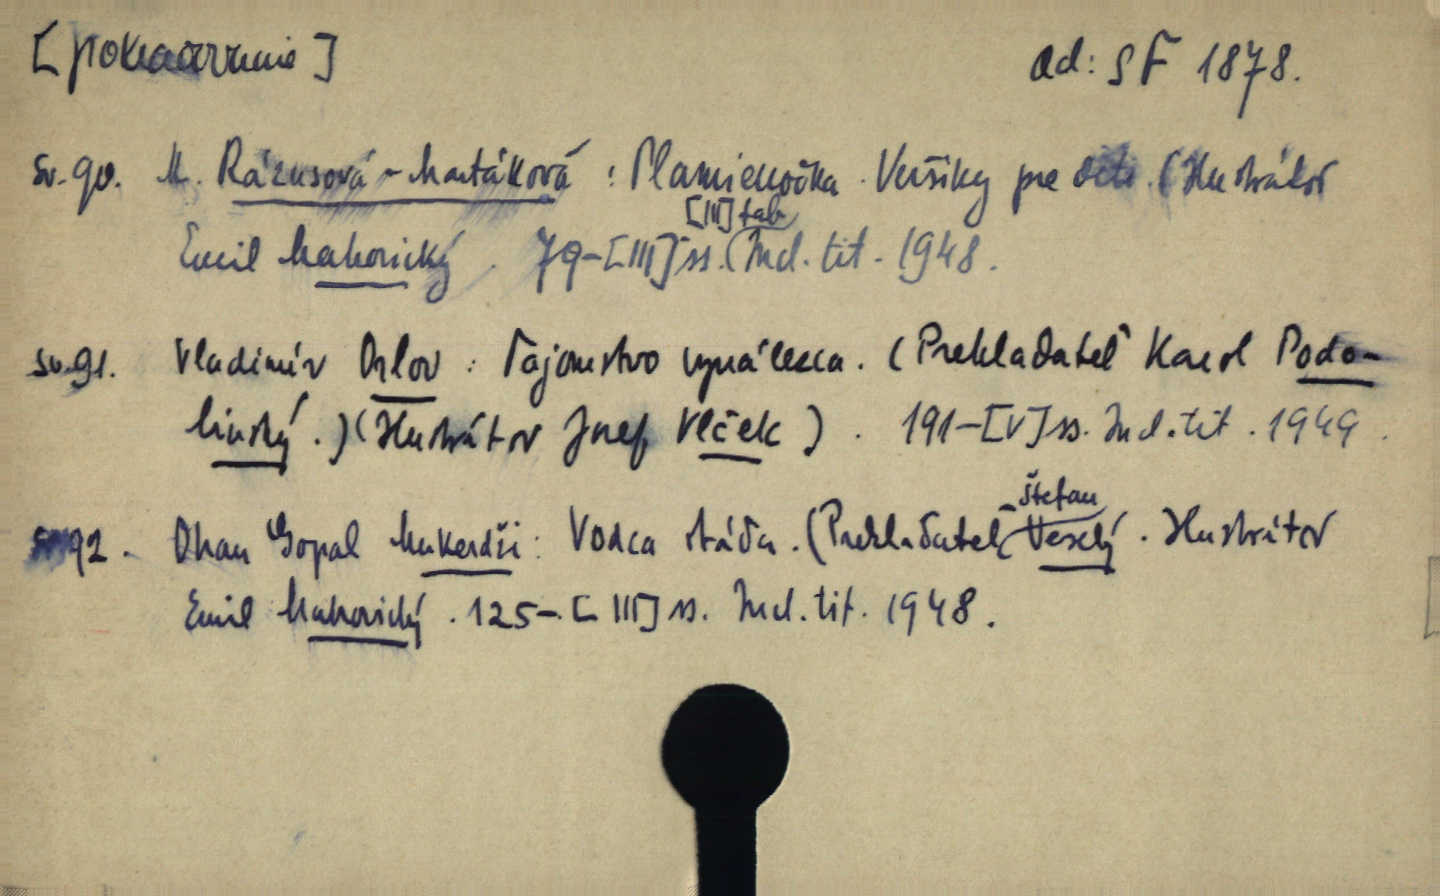 [pokračovanie] ad: SF 1878.
sv. 90. M. Rázusová-Martáková: Plamienočka. Veršíky pre deti. (Ilustrátor
Emil Makovický. 79-[III] ss. [III] tab. Incl. tit. 1948.
sv. 91. Vladimír Orlov: Tajomstvo vynálezca. (Prekladateľ Karol Podo-
linský.) (Ilustrátor Jozef Vlček). 191-[V] ss. Incl. tit. 1949.
sv. 92. Dhan Gopal Mukerdži: Vodca stáda. (Prekladateľ Štefan Veselý. Ilustrátor
Emil Makovický. 125-[III] ss. Incl. tit. 1948.